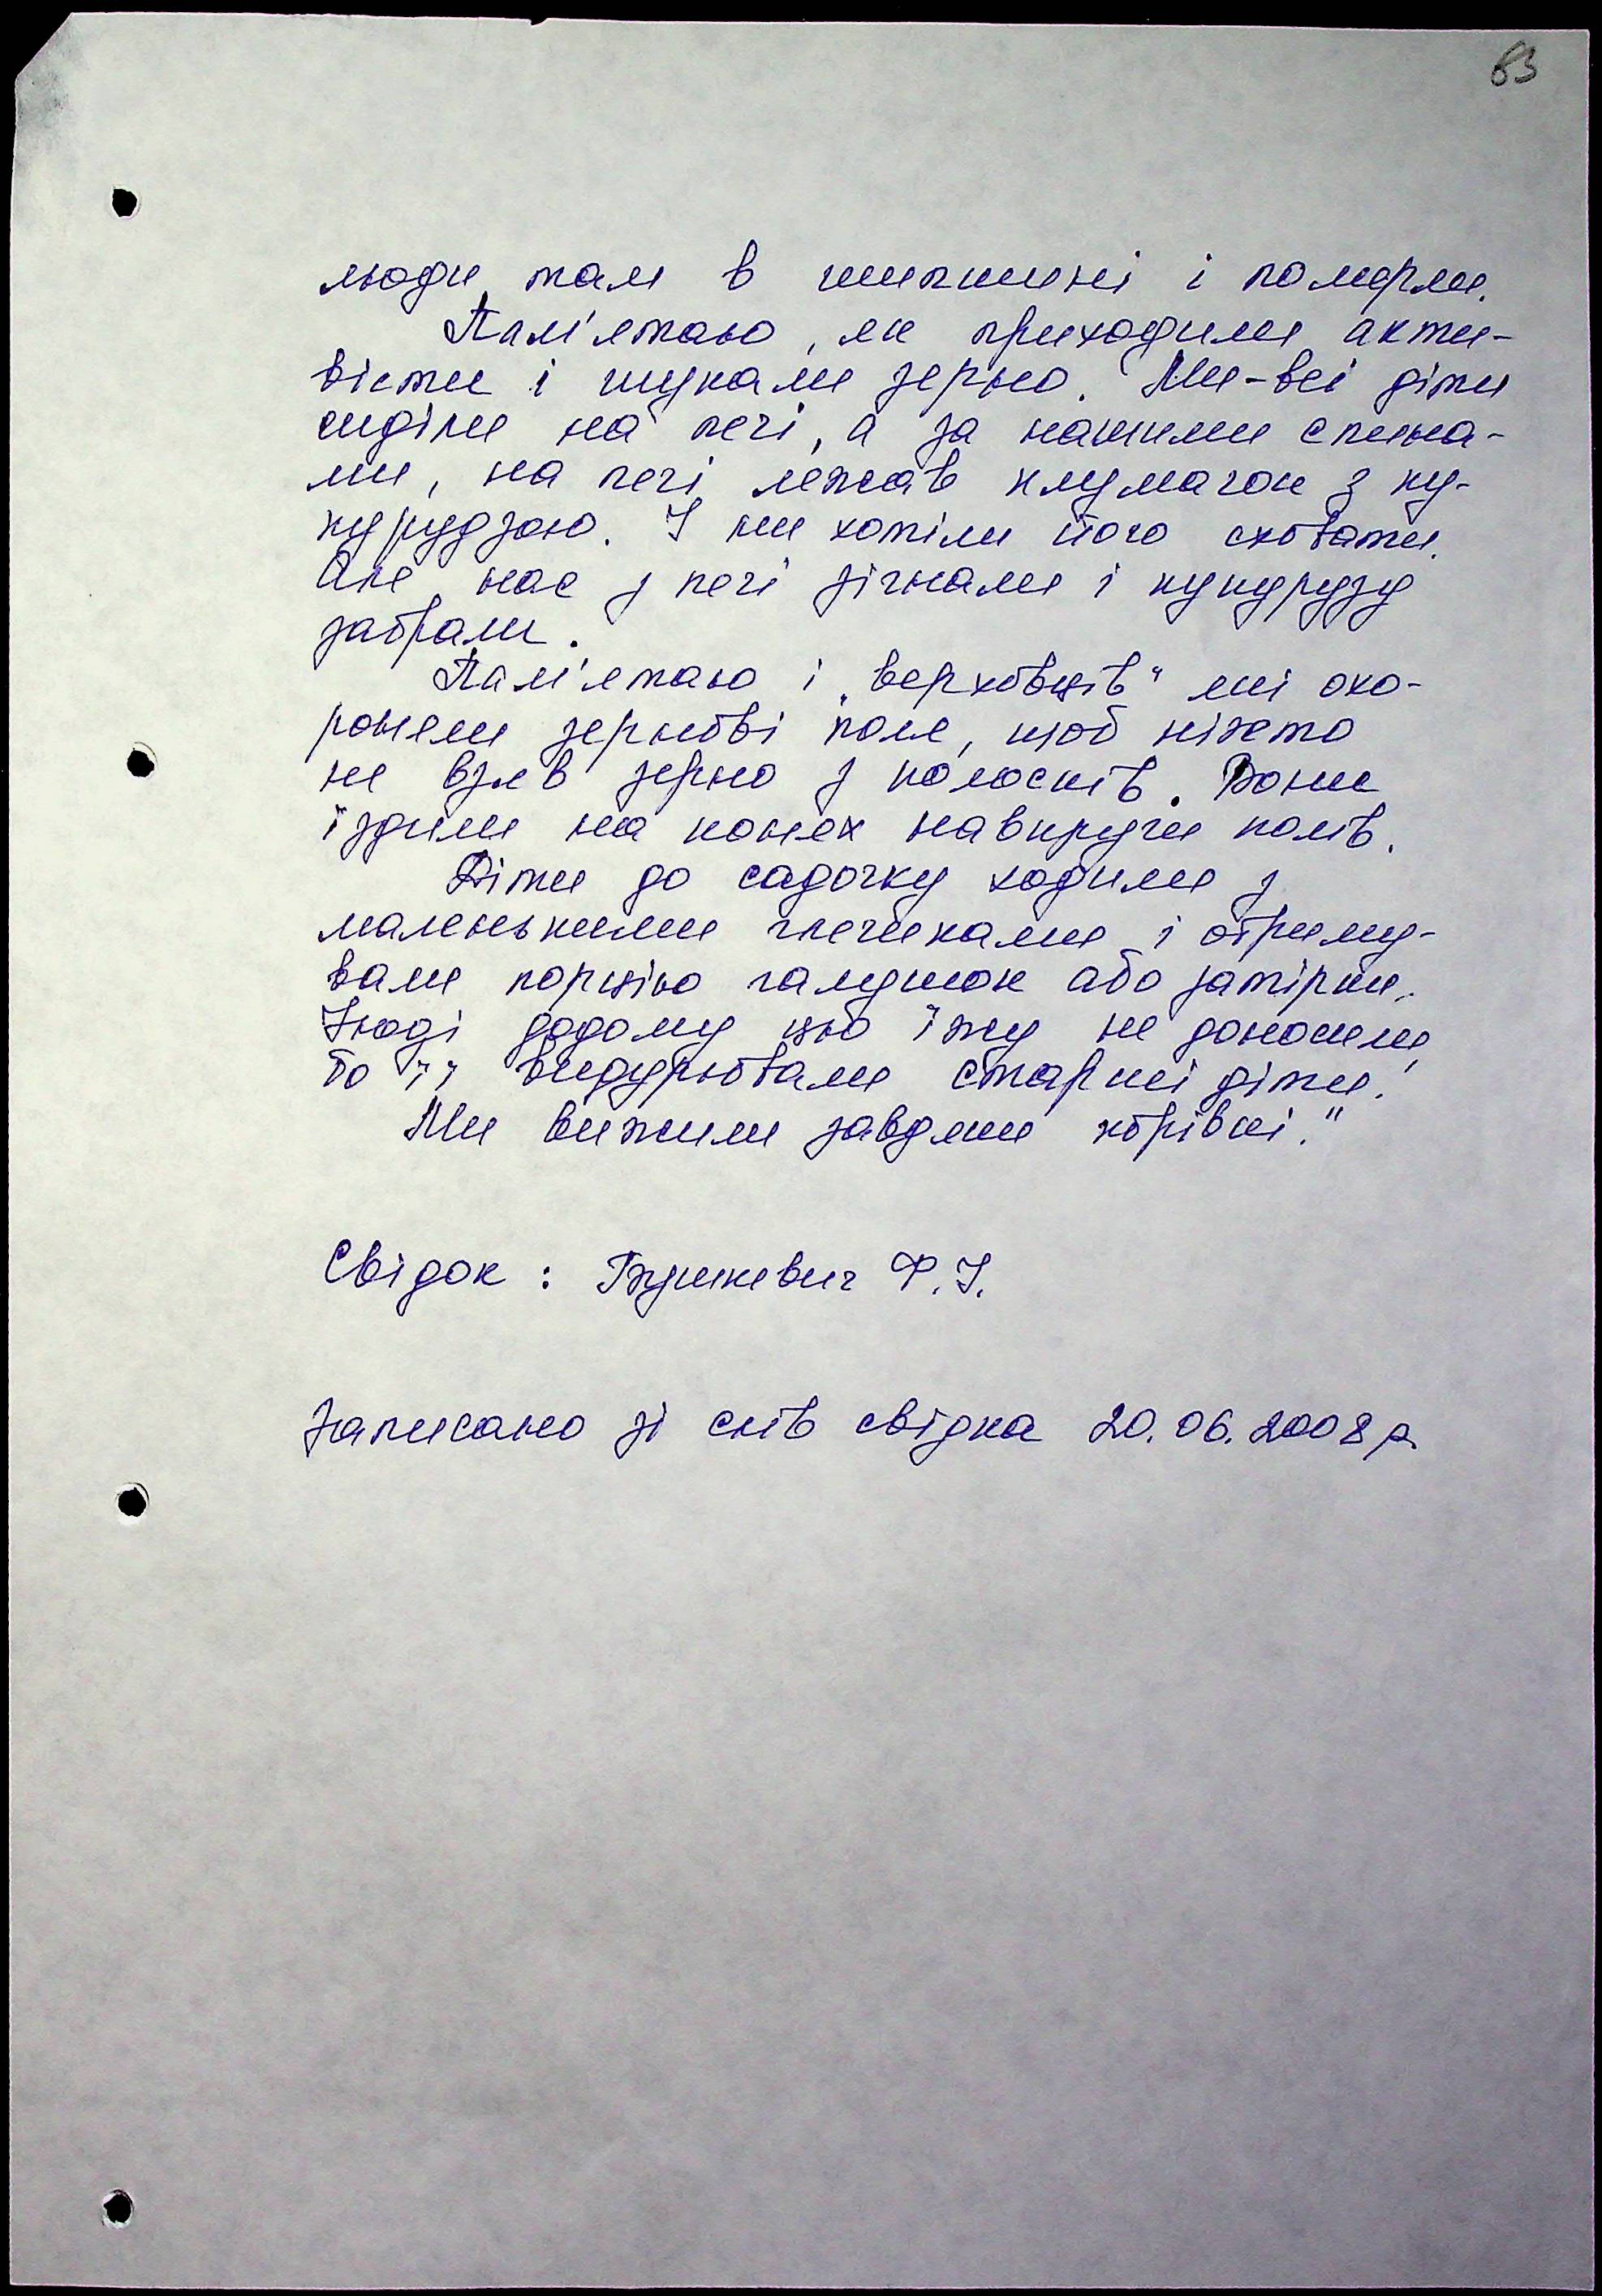 63
люди там в шипшині і померли.
Пам'ятаю, як приходили акти-
вісти і шукали зерно. Ми-всі діти
сиділи на печі, а за нашими спина-
ми, на печі лежав клумачок з ку-
курудзою. І ми хотіли його сховати.
Але нас з печі зігнали і кукурузу
забрали.
Пам'ятаю і „верховців" які охо-
роняли зернові поля, щоб ніхто
не взяв зерно з колосків. Вони
їздили на конях навкруги полів.
Діти до садочку ходили з
маленькими глечиками і отриму-
вали порцію галушок або затірки.
Іноді додому цю їжу не доносили,
бо її видурювали старші діти.
Ми вижили завдяки корівкі."
Свідок: Бушкевич Ф.І.
Записано зі слів свідка 20.06.2008 р.